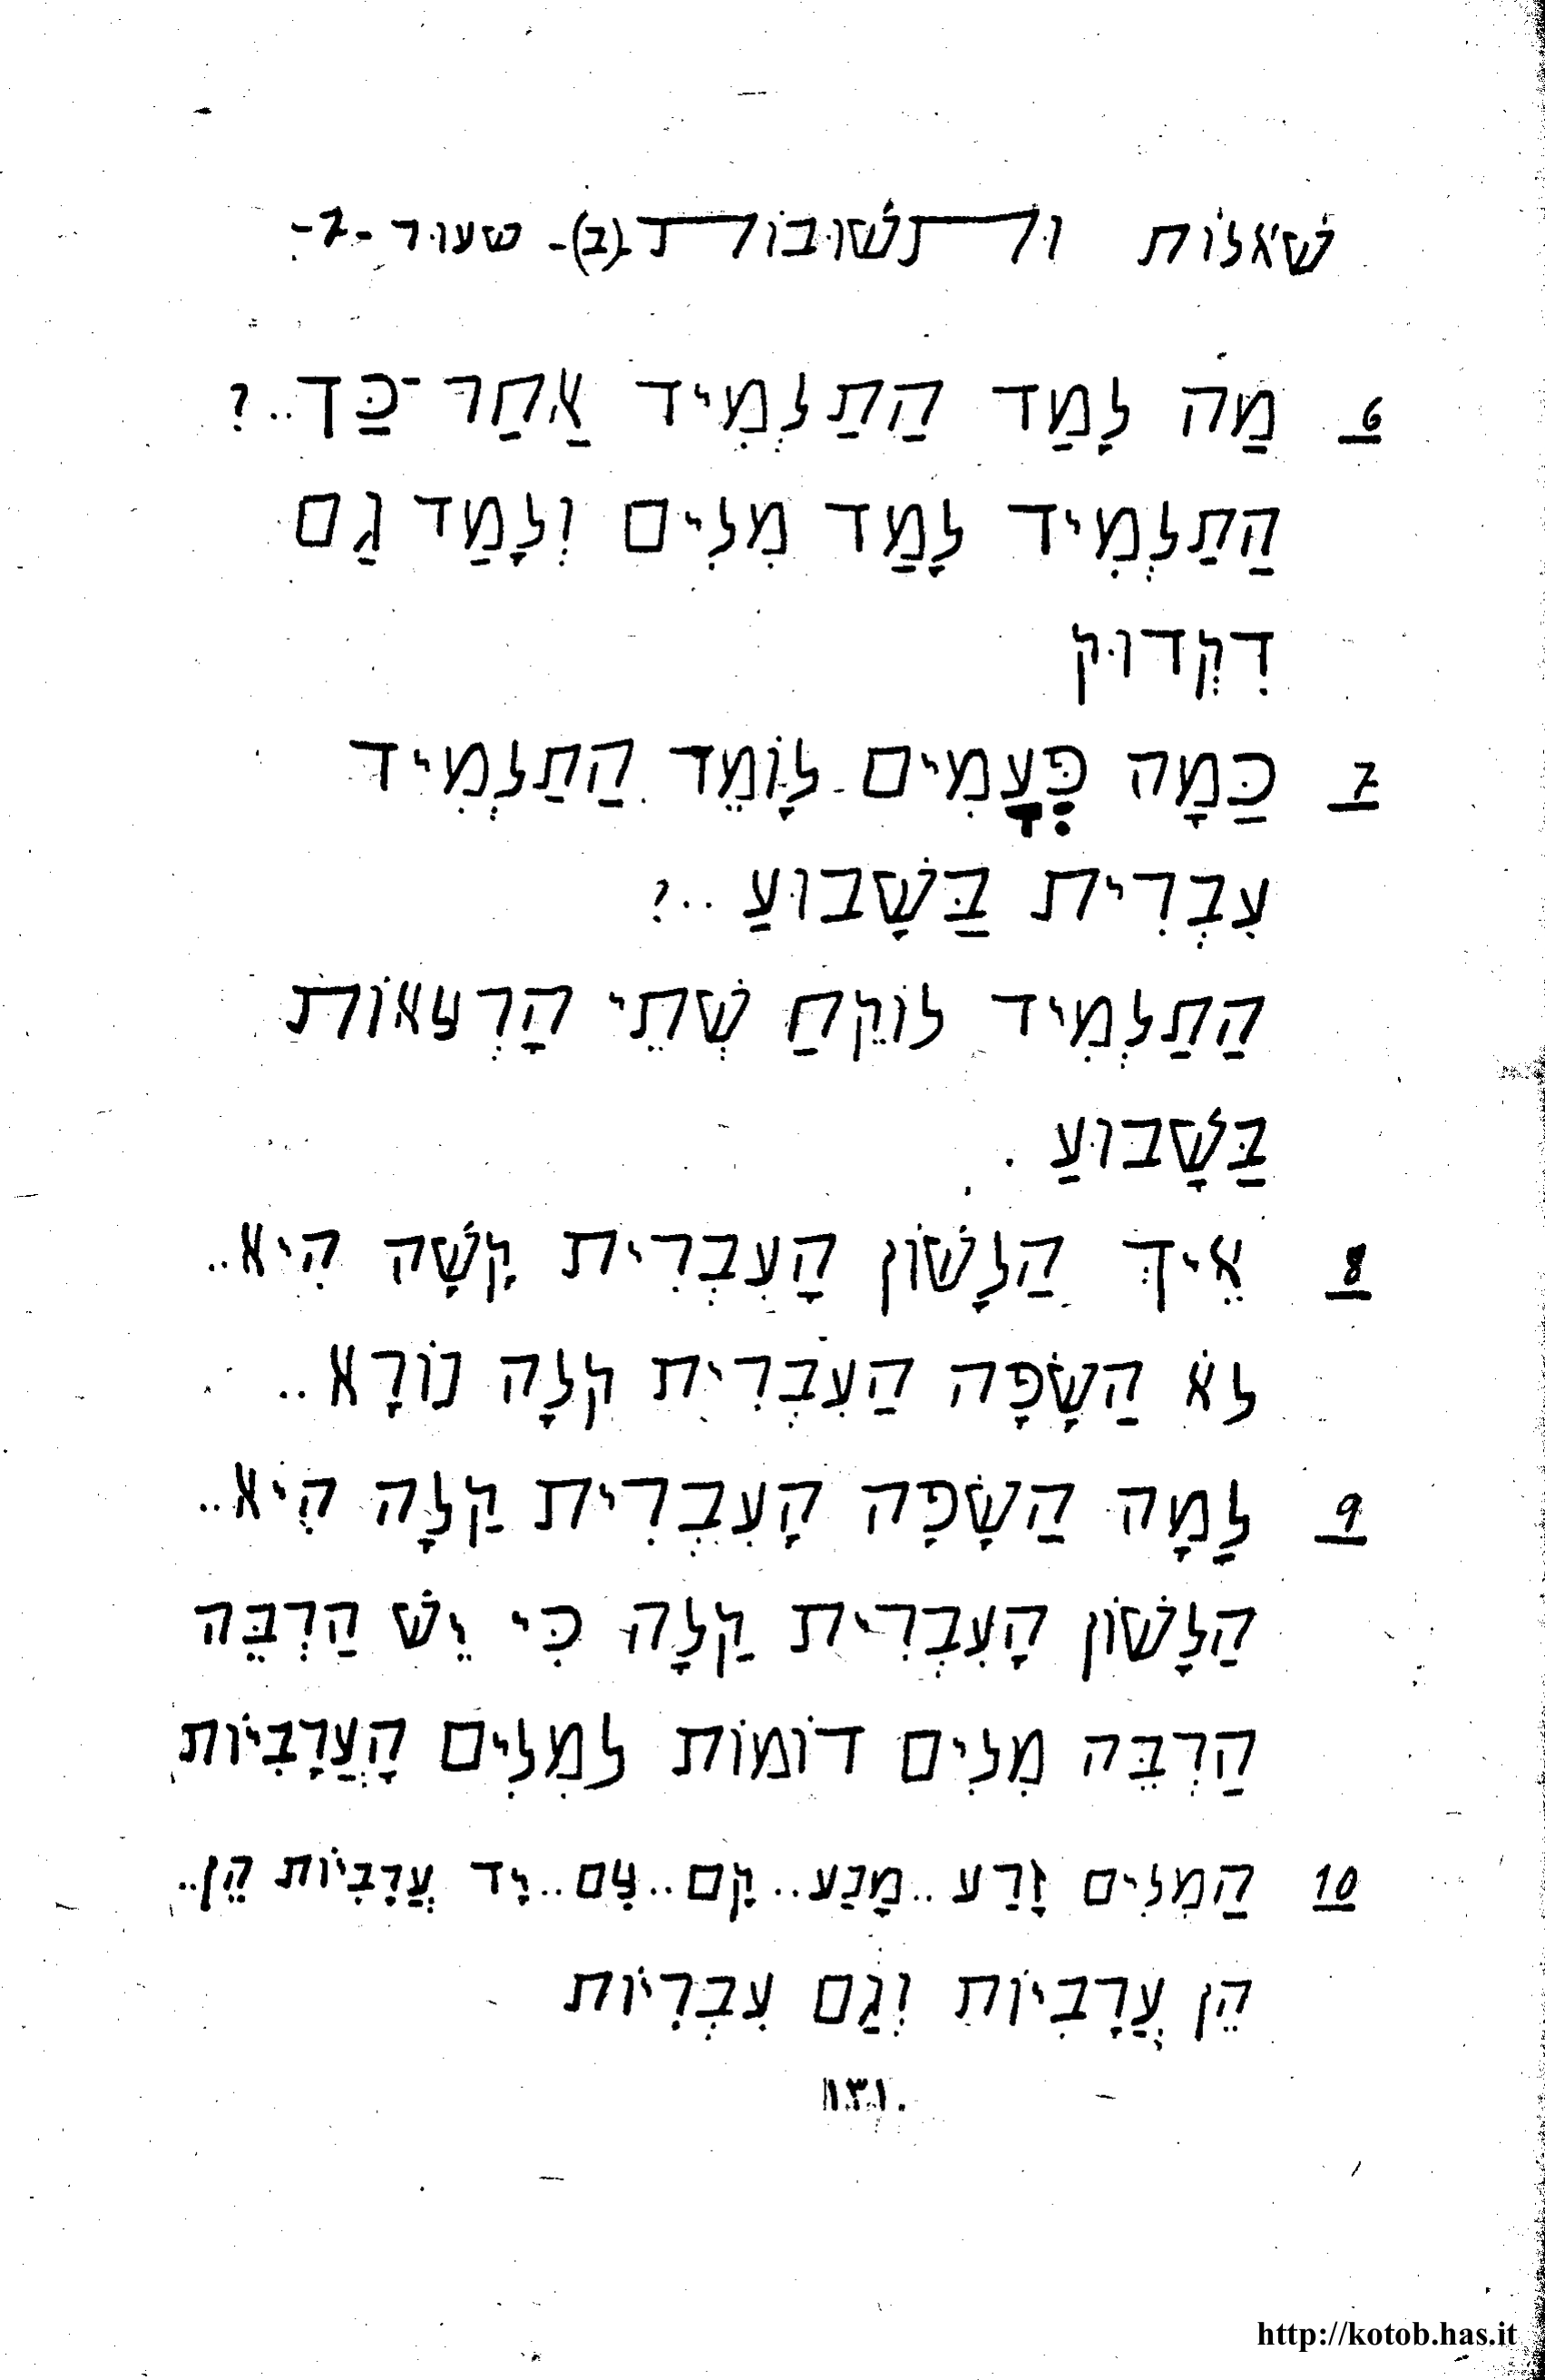 שְׁאֵלוֹת וּתְשׁוּבוֹת (ב)- שעור -7-
6 מַה לָמַד הַתַלְמִיד אַחַר־כַּך..?
הַתַלְמִיד לָמַד מִלִים וְלָמַד גַם
דִקְדוּק
7 כַּמָה פְּעָמִים לוֹמֵד הַתַלְמִיד
עִבְרִית בַּשָׁבוּעַ ..?
הַתַלְמִיד לוֹקֵחַ שְׁתֵי הַרְצאוֹת
בַּשָׁבוּעַ .
8 אֵיךְ הַלָשׁוֹן הָעִבְרִית קָשָׁה הִיא..
לֹא הַשָׂפָה הַעִבְרִית קלָה נוֹרָא ..
9 לָמָה הַשָׂפָה הָעִבְרִית קַלָה הִיא..
הַלָשׁוֹן הָעִבְרִית קַלָה כִּי יֵשׁ הַרְבֵּה
הַרְבֵּה מִלִים דוֹמוֹת למִלִים הָעֲרָבִיוֹת
10 הַמִלִים זָרַע ..מָנַע ..קָם ..צָם ..יָד עֲרָבִיוֹת הֵן..
הֵן עֲרָבִיוֹת וְגַם עִבְרִיוֹת
١٣١
http://kotob.has.it